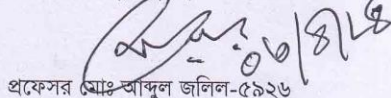 ০৬/৪/১৪
প্রফেসর মোঃ আব্দুল জলিল-৫৯২৬